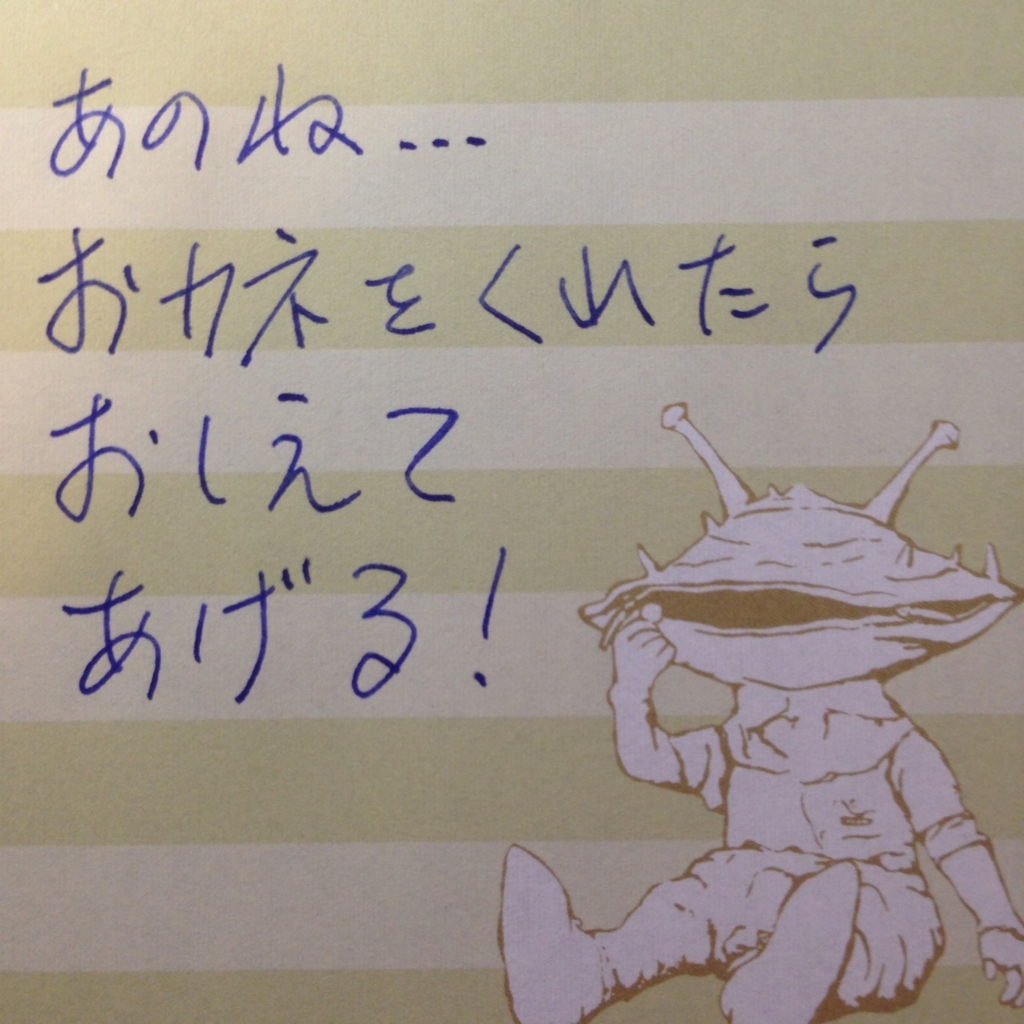 あのね...
おカネをくれたら
おしえて
あげる!